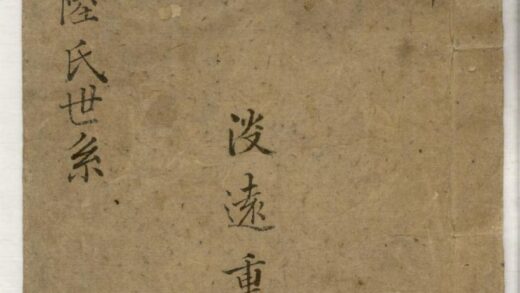 浚遠重
陸氏世系